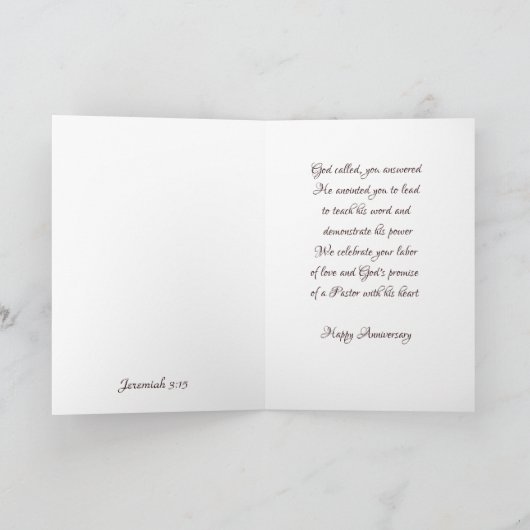 Jeremiah 3:15
God called, you answered
He anointed you to lead
to teach his word and
demonstrate his power
We celebrate your labor
of love and God's promise
of a Pastor with his heart
Happy Anniversary